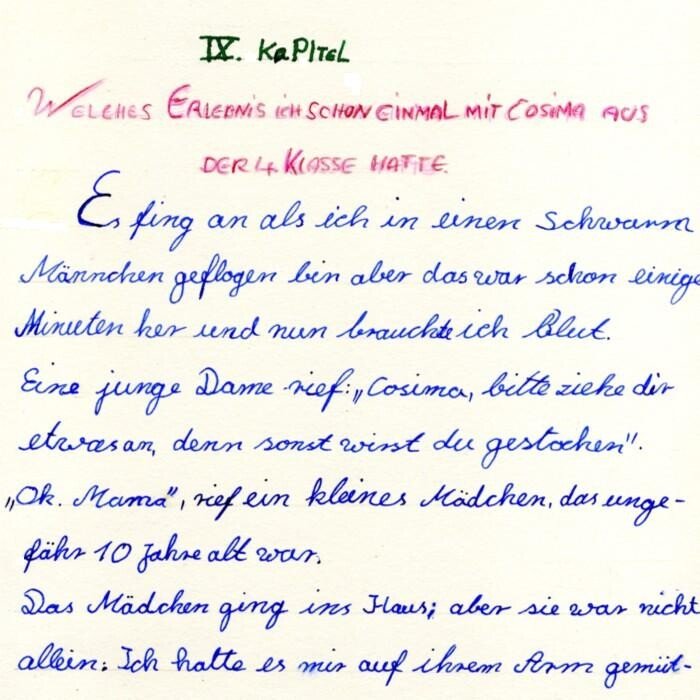 IX. KAPITEL
WELCHES ERLEBNIS ICH SCHON EINMAL MIT COSIMA AUS
DER 4 KLASSE HATTE.
Es fing an als ich in einen Schwarm
Männchen geflogen bin aber das war schon einige
Minuten her und nun brauchte ich Blut.
Eine junge Dame rief: „Cosima, bitte ziehe dir
etwas an, denn sonst wirst du gestochen".
„Ok. Mama", rief ein kleines Mädchen, das unge-
fähr 10 Jahre alt war.
Das Mädchen ging ins Haus; aber sie war nicht
allein: Ich hatte es mir auf ihrem Arm gemüt-